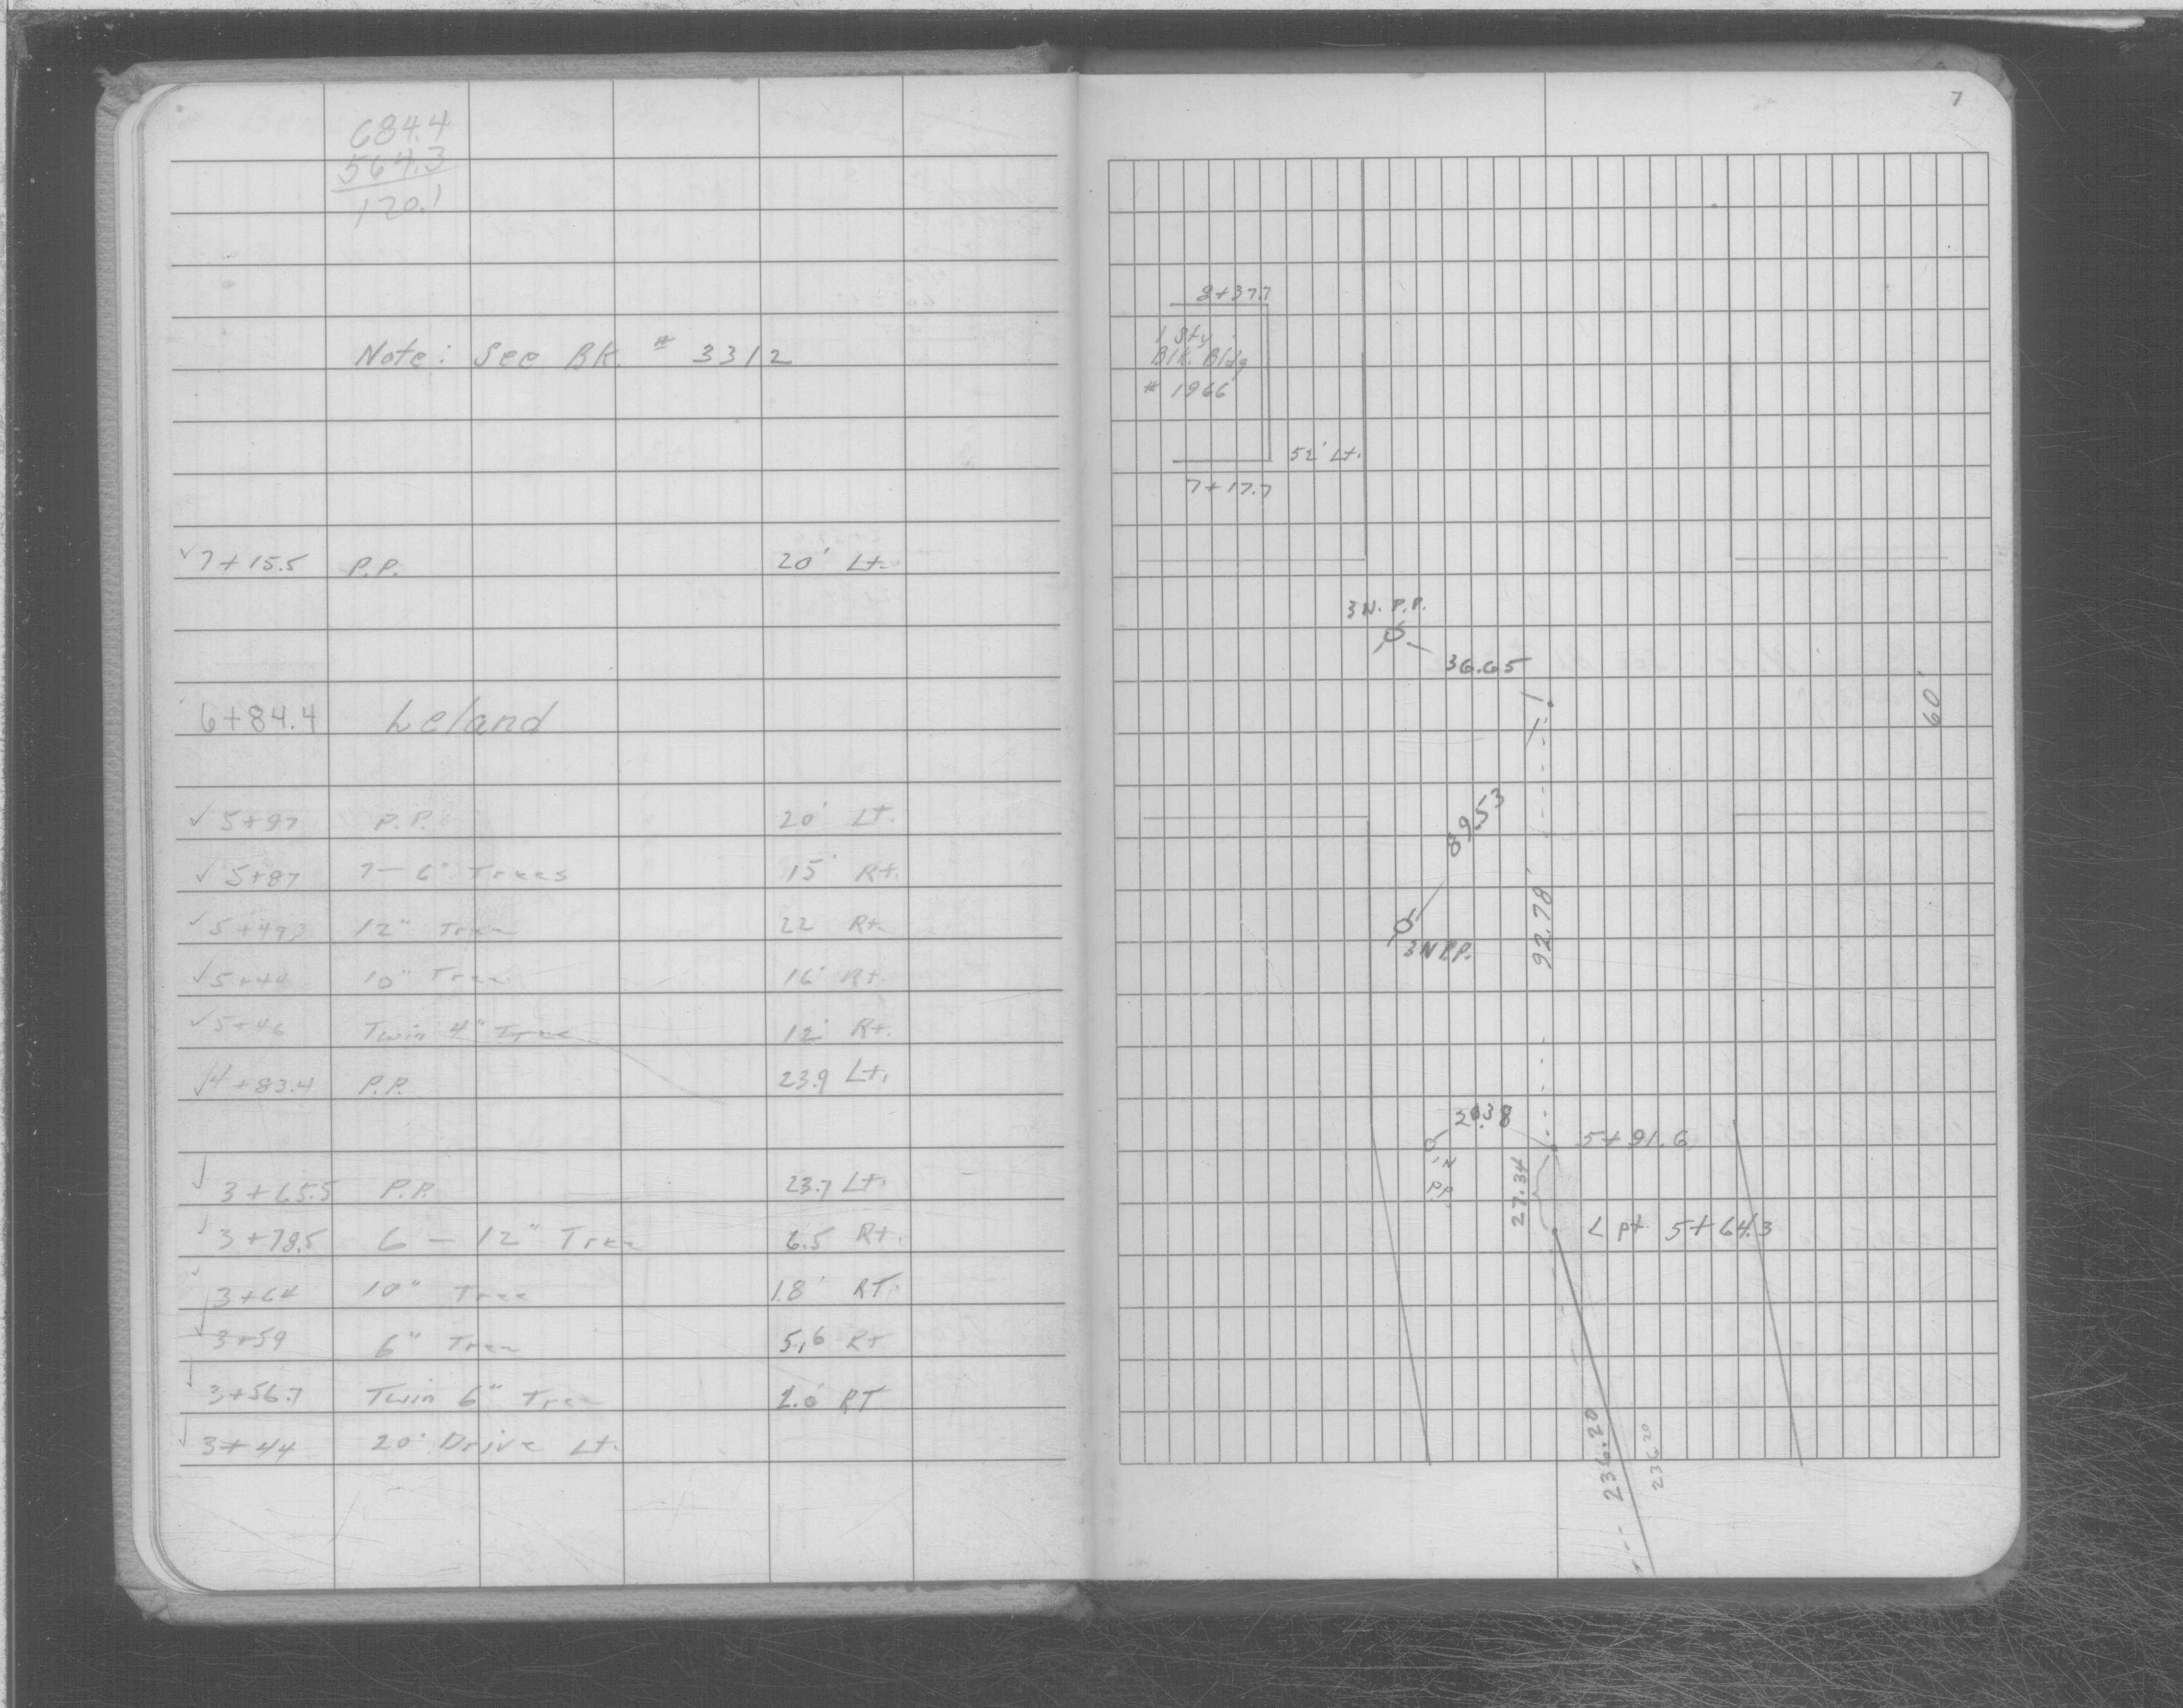 684.4
564.3
120.1
Note: See Bk. # 3312
7+15.5 P.P. 20' Lt.
6+84.4 Leland
5+97 P.P. 20' Lt.
5+87 7-6" Trees 15' Rt.
12" Tree 22 Rt.
10" Tree 16' Rt.
5+46 Twin 4" Tree 12' Rt.
4+83.4 P.P. 23.9 Lt.
3+65.5 P.P. 23.7 Lt.
3+78.5 6-12" Tree 6.5 Rt.
3+64 10" Tree 1.8' RT.
3+59 6" Tree 5.6 Rt
3+56.7 Twin 6" Tree RT
3+44 20' Drive Lt.
7
8+37.7
1 Sty.
Blk. Bldg
# 1966
52' Lt.
7+17.7
3 N. P.P.
36.65
60'
89.53
92.78'
3 N P.P.
5+91.6
1 N
P.P.
27.34
L pt. 5+64.3
236.20
236.20